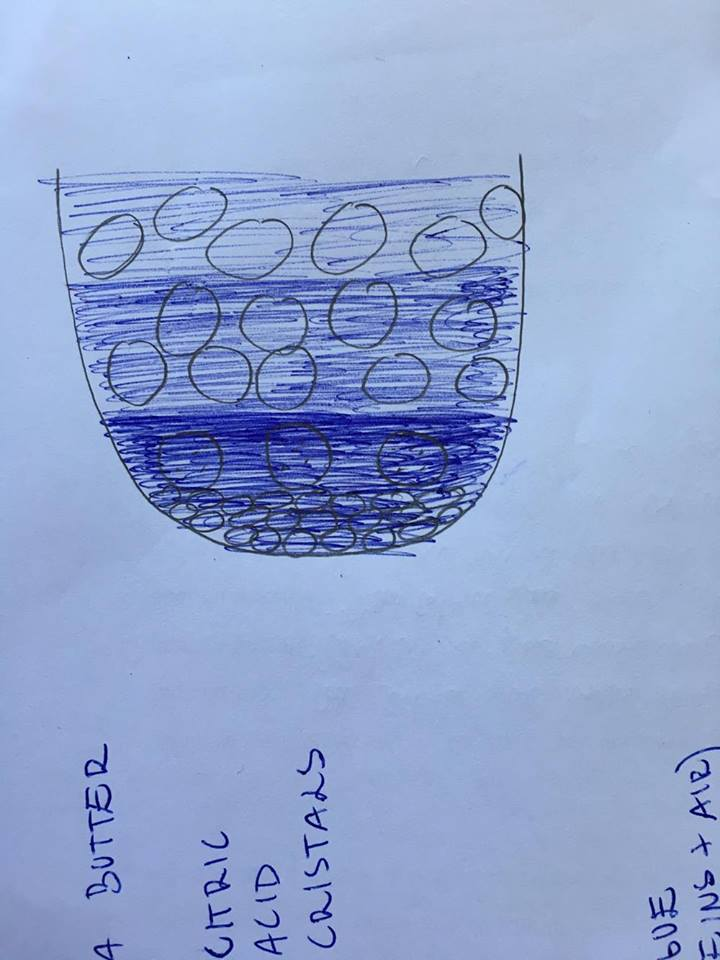 A BUTTER
CITRIC
ACID
CRISTALS
GUE
EINS + AIR)